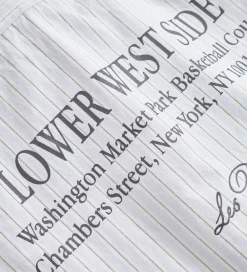 LOWER WEST SIDE
Washington Market Park Basketball Cou
Chambers Street, New York, NY 100
Leo